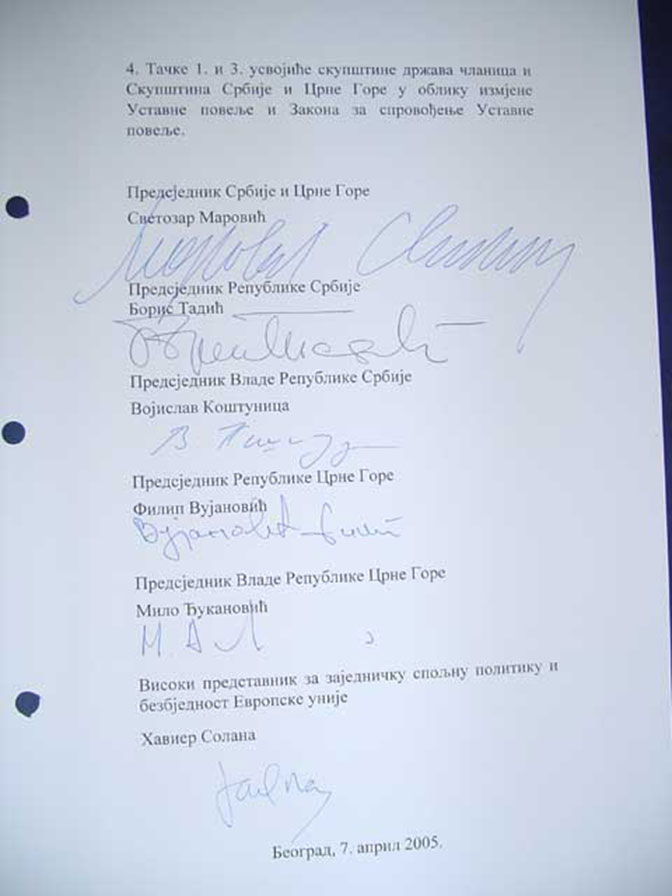 4. Тачке 1. и 3. усвојиће скупштине држава чланица и
Скупштина Србије и Црне Горе у облику измјене
Уставне повеље и Закона за спровођење Уставне
повеље.
Предсједник Србије и Црне Горе
Светозар Маровић
Предсједник Републике Србије
Борис Тадић
Предсједник Владе Републике Србије
Војислав Коштуница
Предсједник Републике Црне Горе
Филип Вујановић
Вујановић Филип
Предсједник Владе Републике Црне Горе
Мило Ђукановић
Високи представник за заједничку спољну политику и
безбједност Европске уније
Хавиер Солана
Београд, 7. април 2005.